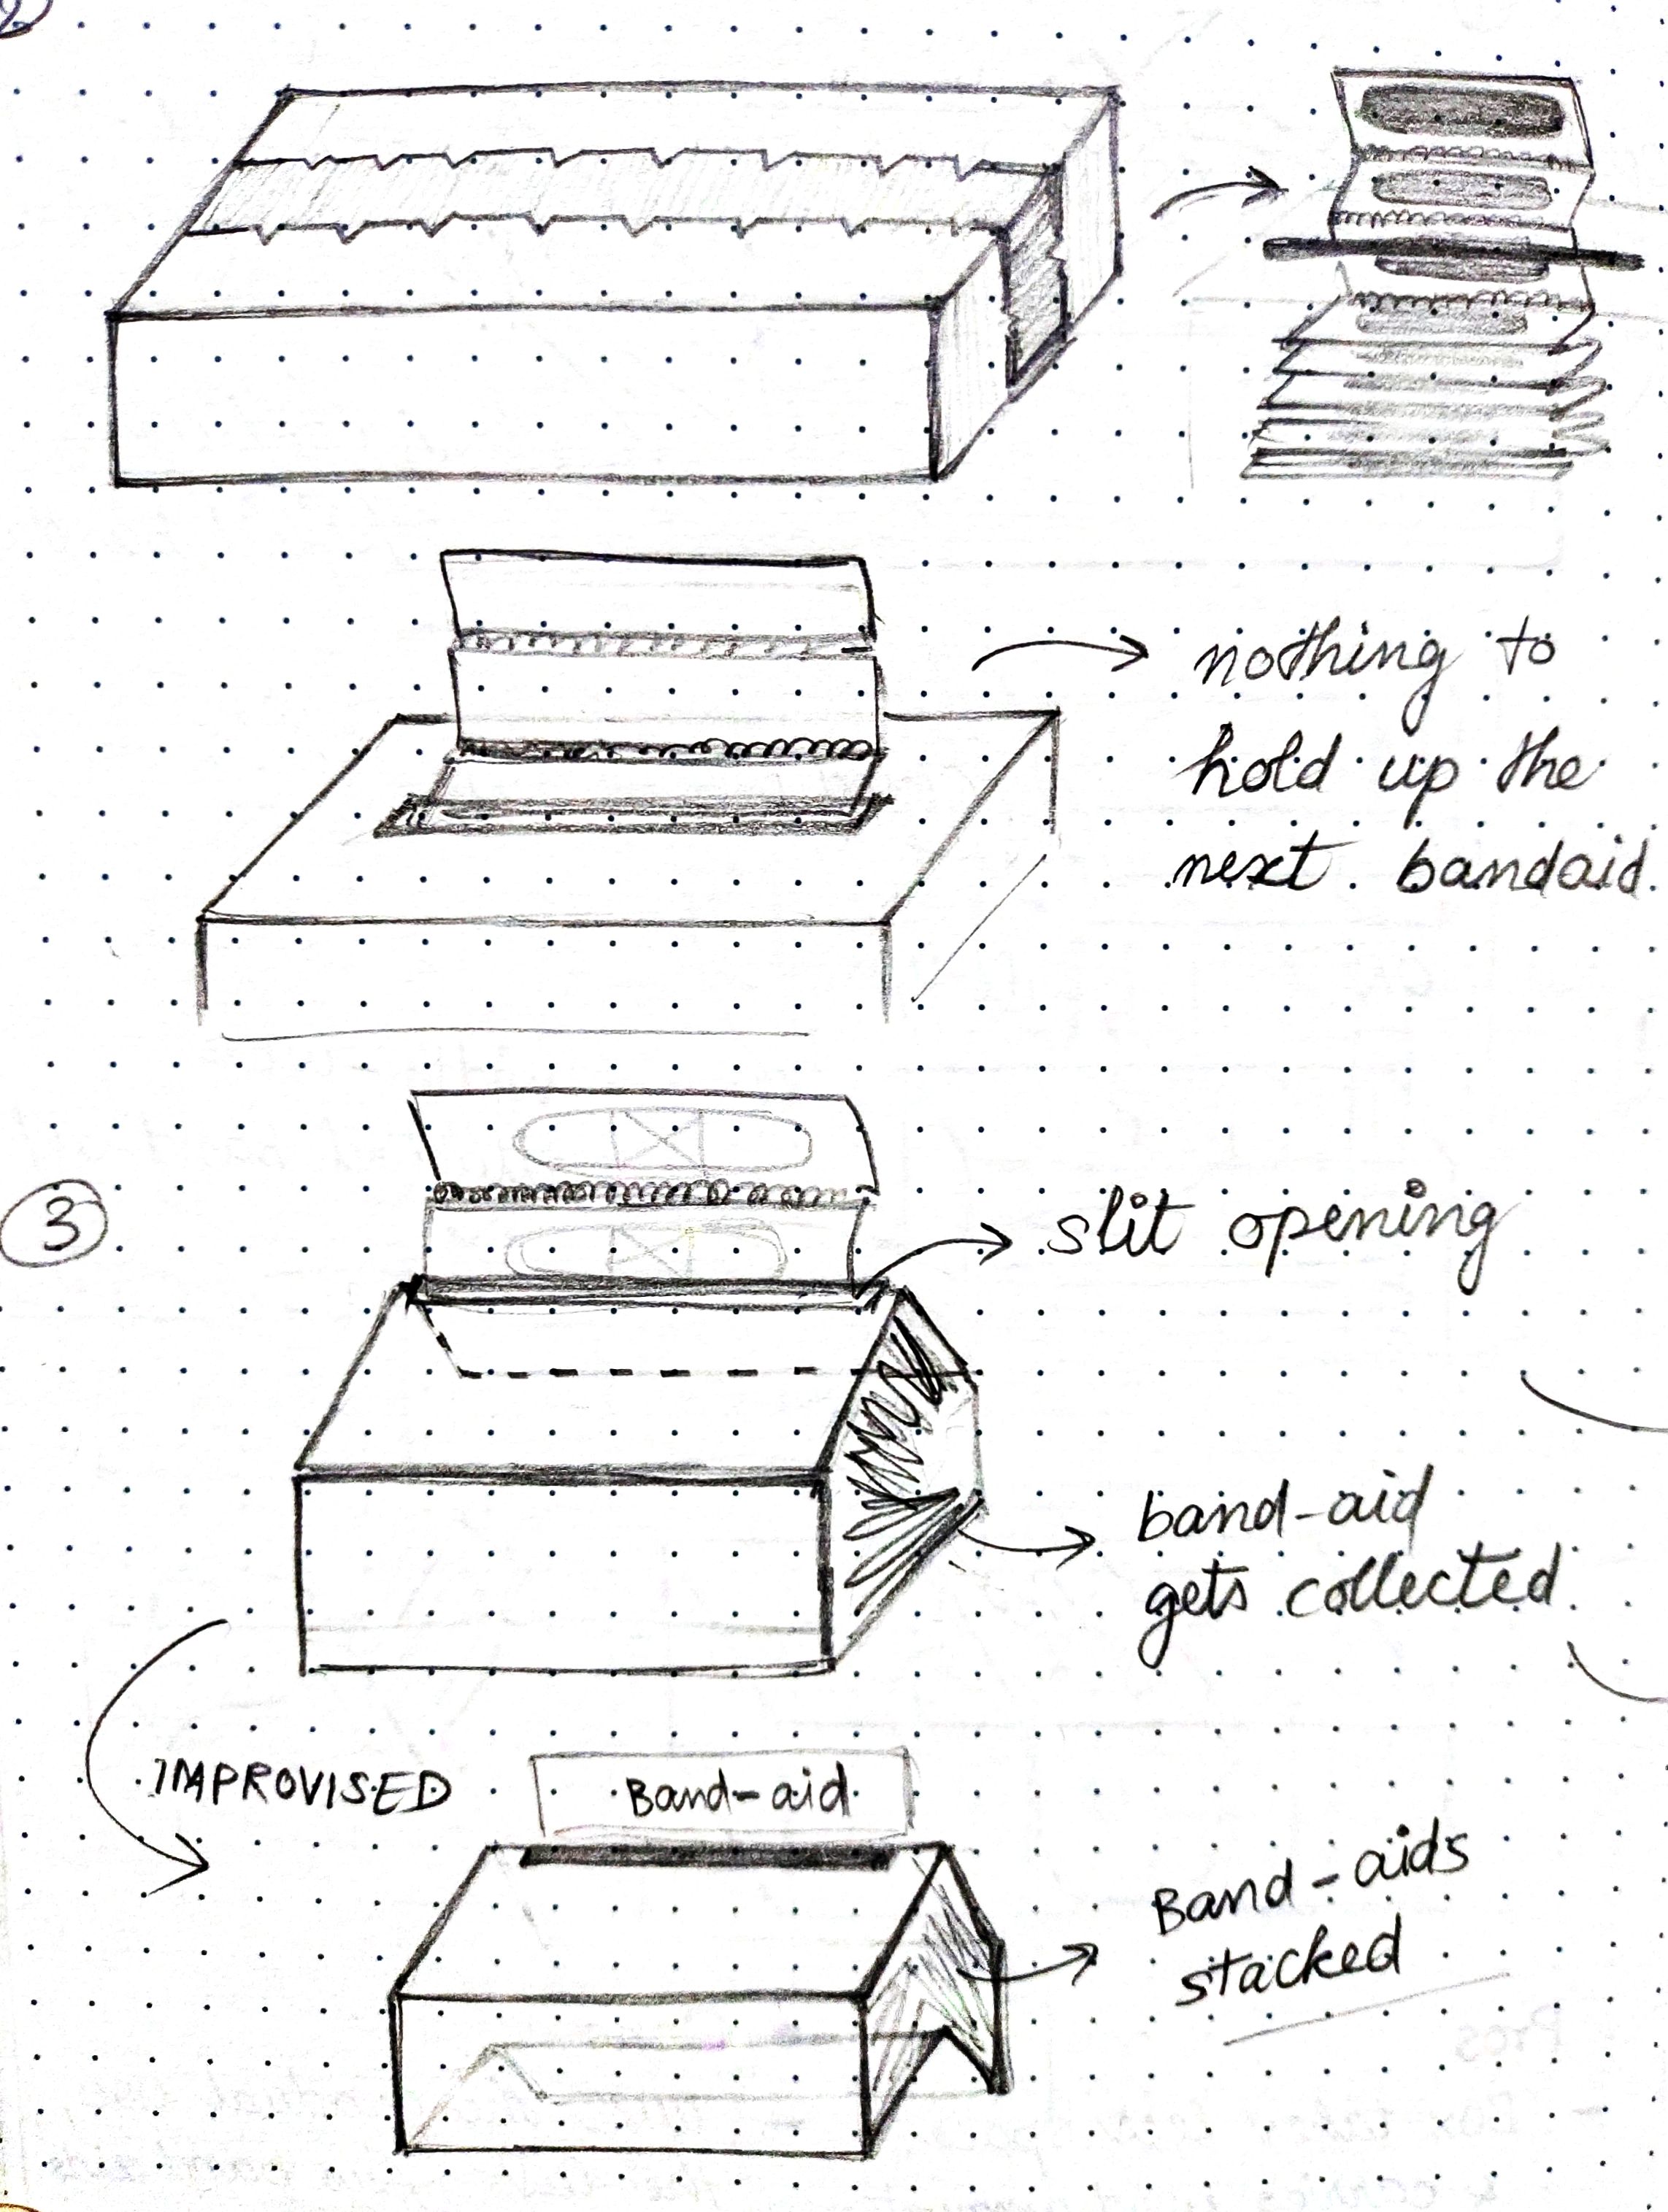 nothing to
hold up the
next bandaid.
3
slit opening
band-aid
gets collected.
IMPROVISED
Band-aid
Band-aids
stacked
Pros